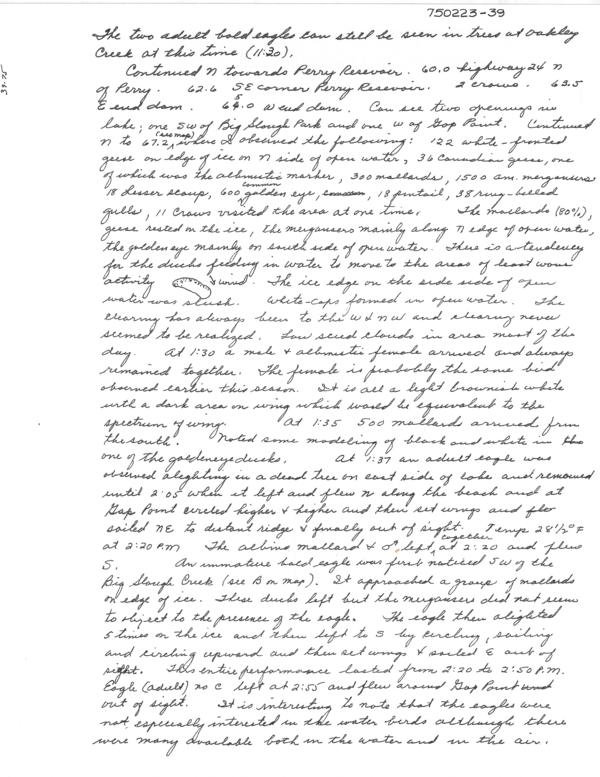 750223-39
39-75
The two adult bald eagles can still be seen in trees at Oakley
Creek at this time (11:20).
Continued N towards Perry Resevoir. 60.0 highway 24 N
of Perry. 62.6 SE corner Perry Resevoir. 2 crows. 63.5
E end dam. 65.0 W end dam. Can see two openings in
lake; one SW of Big Slough Park and one W of Gap Point. Continued
N to 67.2 (see map) where I observed the following: 122 white-fronted
geese on edge of ice on N side of open water, 36 Canadian geese, one
of which was the albinistic marker, 300 mallards, 1500 am. mergansers
18 lesser scaup, 600 common golden eye, 18 pintail, 38 ring-billed
gulls, 11 crows visited the area at one time. The mallards (80%),
geese rested on the ice, the mergansers mainly along N edge of open water,
the goldeneye mainly on south side of open water. There is a tendency
for the ducks feeding in water to move to the areas of least wave
activity & wind. The ice edge on the side of open
water was slush. White-caps formed in open water. The
clearing has always been to the W & NW and clearing never
seemed to be realized. Low scud clouds in area most of the
day. At 1:30 a male & albinistic female arrived and always
remained together. The female is probably the same bird
observed earlier this season. It is all a light brownish white
with a dark area on wing which would be equivalent to the
spectrum of wing. At 1:35 500 mallards arrived from
the south. Noted some modeling of black and white in
one of the goldeneye ducks. At 1:37 an adult eagle was
observed alighting in a dead tree on east side of lake and remained
until 2:05 when it left and flew N along the beach and at
Gap Point circled higher & higher and then set wings and
sailed NE to distant ridge & finally out of sight. Temp 28 1/2° F
at 2:20 P.M. The albino mallard & ♂ left together at 2:20 and flew
S. An immature bald eagle was first noticed SW of the
Big Slough Creek (see B on map). It approached a group of mallards
on edge of ice. These ducks left but the mergansers did not seem
to object to the presence of the eagle. The eagle then alighted
5 times on the ice and then left to S by circling, sailing
and circling upward and then set wings & sailed E out of
sight. This entire performance lasted from 2:20 to 2:50 P.M.
Eagle (adult) no C left at 2:55 and flew around Gap Point and
out of sight. It is interesting to note that the eagles were
not especially interested in the water birds although there
were many available both in the water and in the air.